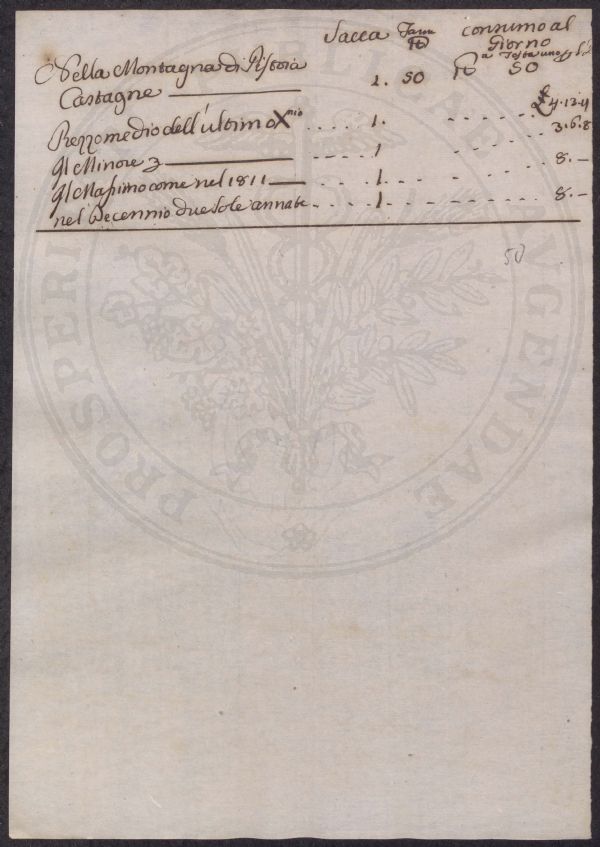 Sacca consumo al
Giorno
Nella Montagna di Pistoia
Castagne 1. 50 50
Prezzo medio dell'ultimo Xnio 1. 4.13.4
Il Minore 1 3.6.8
Il Massimo come nel 1811 1. 8.-
nel Decennio due sole annate 1. 8.-
50
PROSPERI AUGENDAE